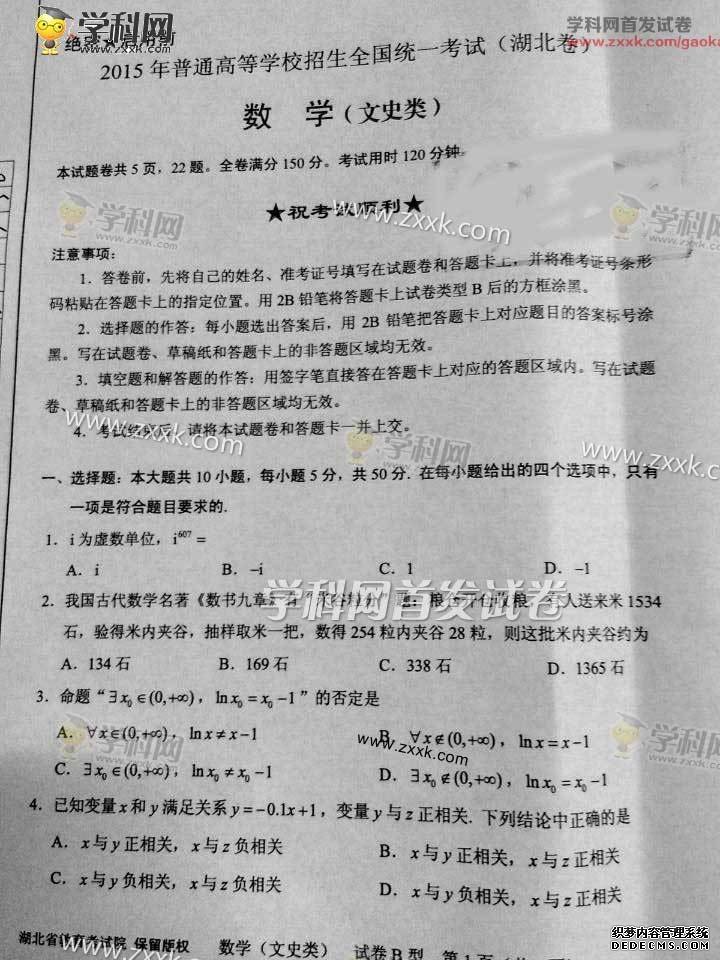 学科网首发试卷
www.zxxk.com/gaoka
学科网
zxxk.com
绝密★启用前
2015年普通高等学校招生全国统一考试(湖北卷)
数 学(文史类)
本试题卷共5页,22题。全卷满分150分。考试用时120分钟
学科网
zxxk.com
★祝考 顺利★
www.zxxk.com
学科网
zxxk.com
注意事项:
1.答卷前,先将自己的姓名、准考证号填写在试题卷和答题卡上,并将准考证号条形
码粘贴在答题卡上的指定位置。用2B铅笔将答题卡上试卷类型B后的方框涂黑。
2.选择题的作答:每小题选出答案后,用2B铅笔把答题卡上对应题目的答案标号涂
黑。写在试题卷、草稿纸和答题卡上的非答题区域均无效。
3.填空题和解答题的作答:用签字笔直接答在答题卡上对应的答题区域内。写在试题
卷、草稿纸和答题卡上的非答题区域均无效。
4.考试结束后,请将本试题卷和答题卡一并上交。
www.zxxk.com
学科网
zxxk.com
www.zxxk.com
一、选择题:本大题共10小题,每小题5分,共50分.在每小题给出的四个选项中,只有
一项是符合题目要求的.
1.i为虚数单位,i⁶⁰⁷=
A.i B.-i C.1 D.-1
学科网首发试卷
2.我国古代数学名著《数书九章》有 题:粮 开仓收粮, 人送来米1534
石,验得米内夹谷,抽样取米一把,数得254粒内夹谷28粒,则这批米内夹谷约为
A.134石 B.169石 C.338石 D.1365石
3.命题“∃x₀∈(0,+∞),lnx₀=x₀-1”的否定是
A.∀x∈(0,+∞),lnx≠x-1 B.∀x∉(0,+∞),lnx=x-1
C.∃x₀∈(0,+∞),lnx₀≠x₀-1 D.∃x₀∉(0,+∞),lnx₀=x₀-1
学科网
zxxk.com
www.zxxk.com
学科网
zxxk.com
4.已知变量x和y满足关系y=-0.1x+1,变量y与z正相关.下列结论中正确的是
A.x与y正相关,x与z负相关 B.x与y正相关,x与z正相关
C.x与y负相关,x与z负相关 D.x与y负相关,x与z正相关
湖北省教育考试院 保留版权 数学(文史类) 试卷B型 第1页
织梦内容管理系统
DEDECMS.COM